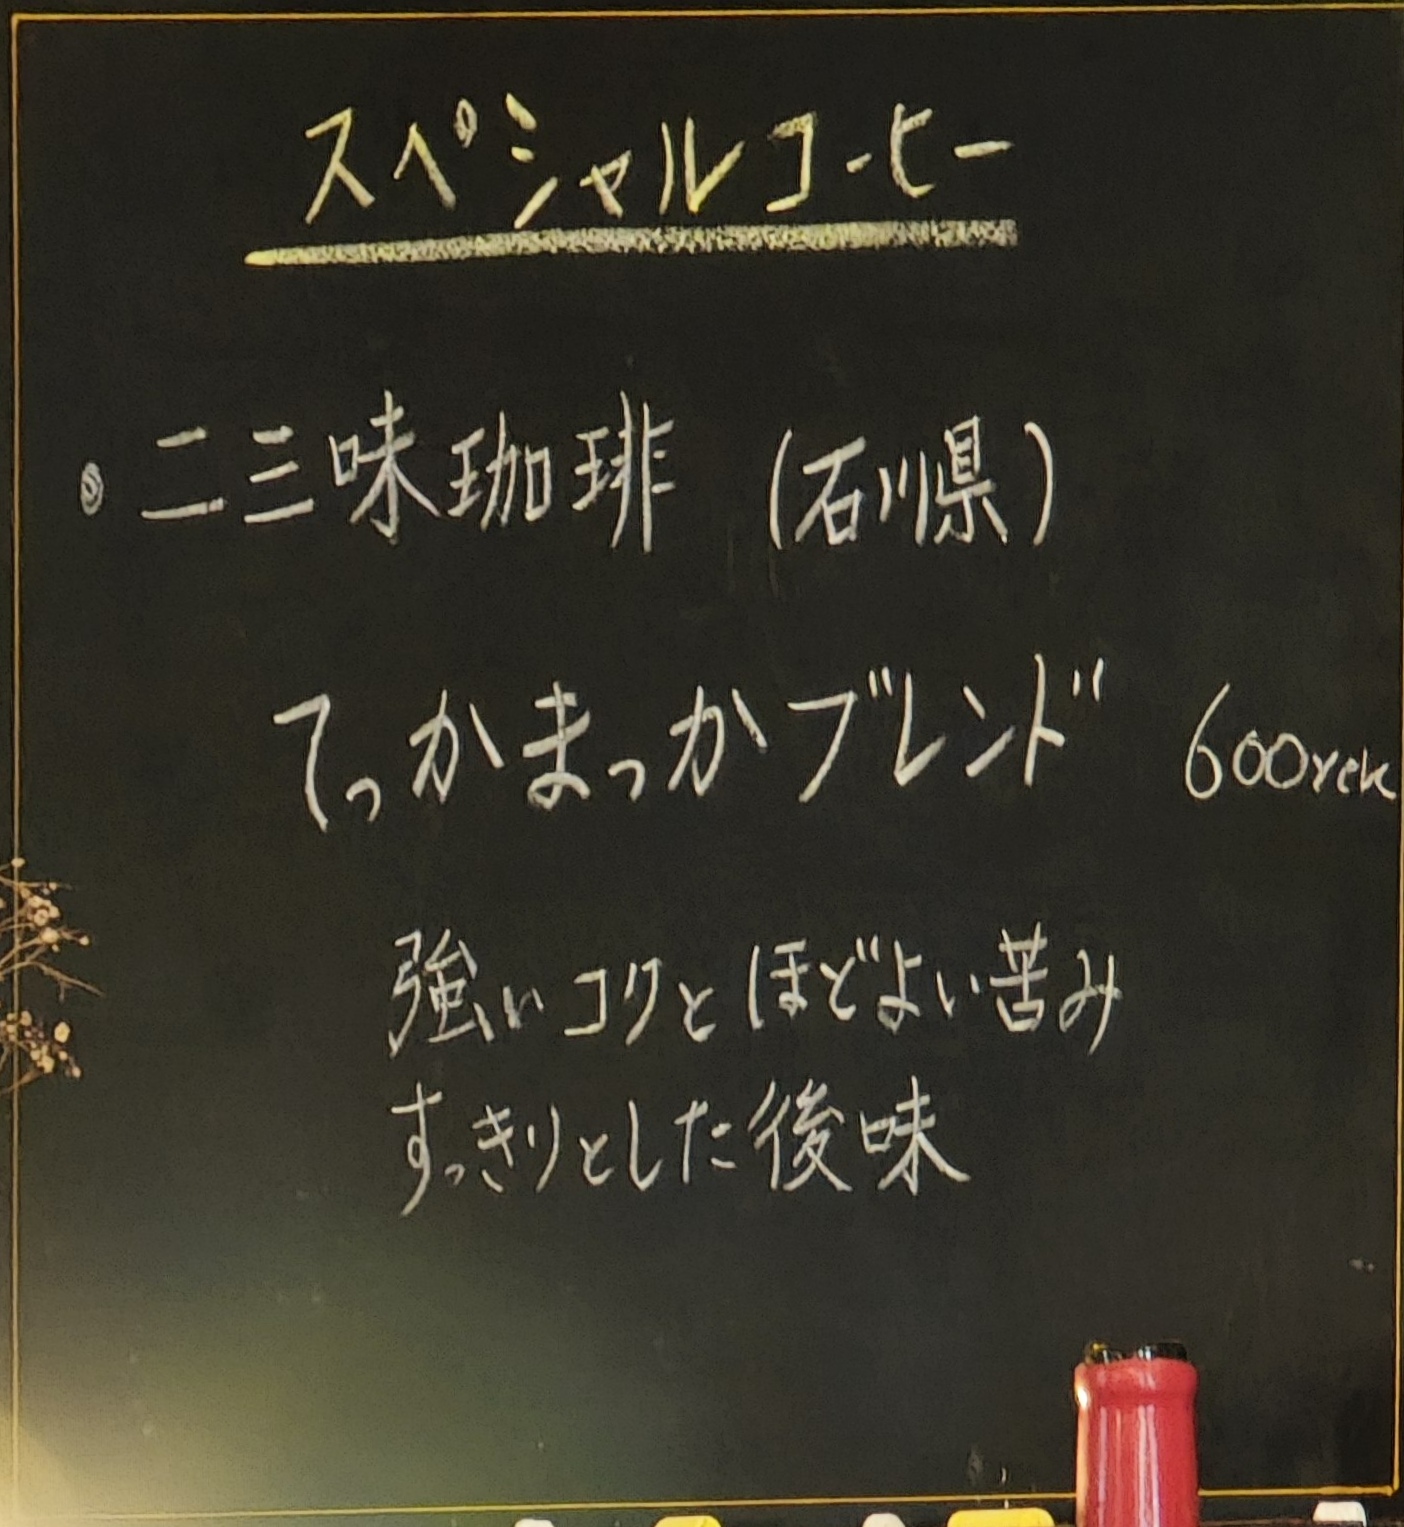 スペシャルコーヒー
• 二三味珈琲 (石川県)
てっかまっかブレンド 600yen
強いコクとほどよい苦み
すっきりとした後味